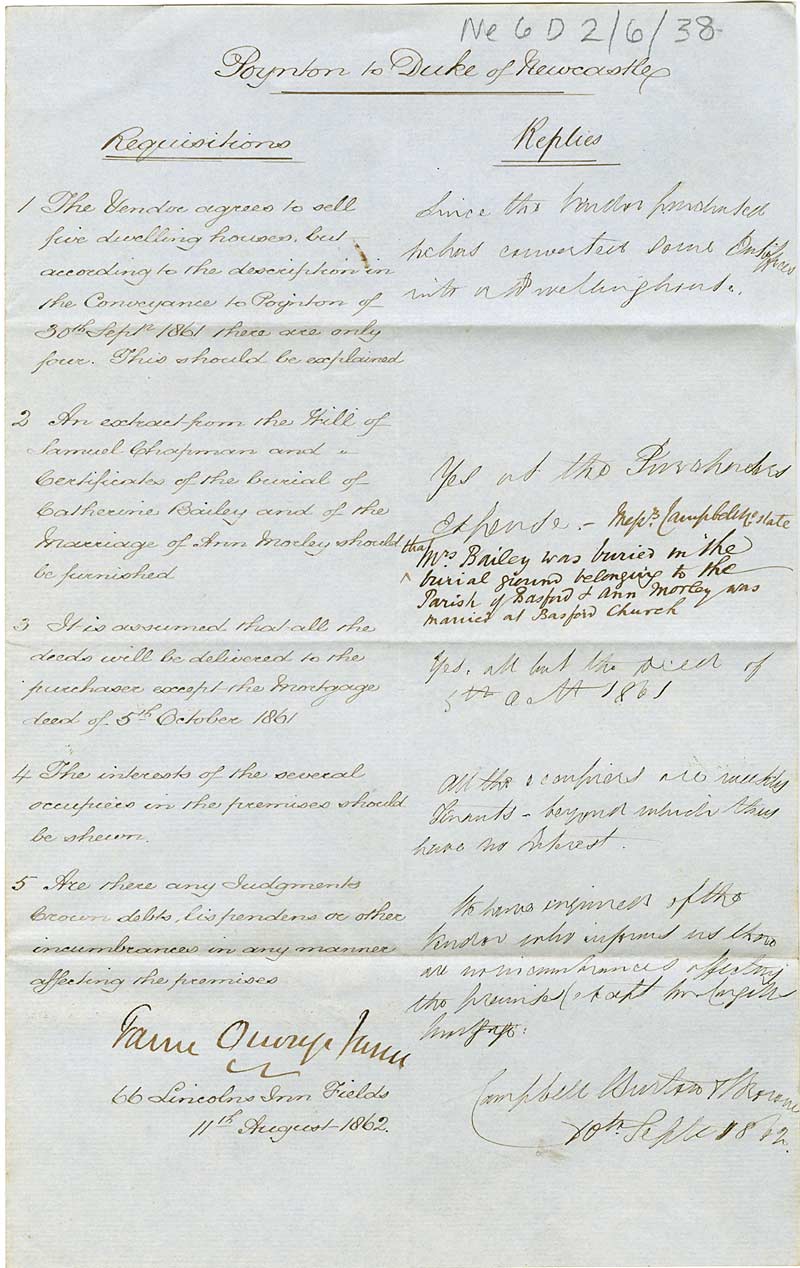 Ne 6 D 2/6/38
Poynton to Duke of Newcastle
Requisitions
1 The Vendor agrees to sell
five dwelling houses, but
according to the description in
the Conveyance to Poynton of
30th Septr 1861 there are only
four. This should be explained
2 An extract from the Will of
Samuel Chapman and
Certificates of the burial of
Catherine Bailey and of the
Marriage of Ann Morley should
be furnished
3 It is assumed that all the
deeds will be delivered to the
purchaser except the Mortgage
deed of 5th October 1861
4 The interests of the several
occupiers in the premises should
be shewn.
5 Are there any Judgments
Crown debts, lis pendens or other
incumbrances in any manner
affecting the premises
66 Lincolns Inn Fields
11th August 1862.
Replies
Since the Vendor purchased
he has converted some
into a Dwellinghouse.
Yes at the Purchasers
expense. - Messrs. Campbell & Co state
that Mrs Bailey was buried in the
burial ground belonging to the
Parish of Basford & Ann Morley was
married at Basford Church
Yes, all but the deed of
5th Octr 1861
All the occupiers are weekly
Tenants - beyond which they
have no Interest.
We have enquired of the
Vendor who informs us there
are no incumbrances affecting
the premises except
Campbell Burton &
10th Septr 1862.